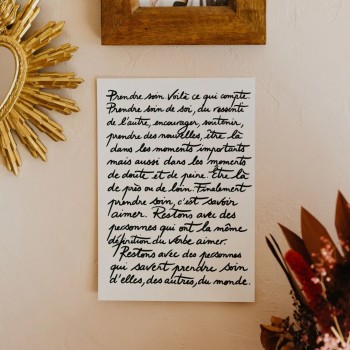 Prendre soin Voilà ce qui compte.
Prendre soin de soi, du ressenti
de l'autre, encourager, soutenir,
prendre des nouvelles, être là
dans les moments importants
mais aussi dans les moments
de doute et de peine. Être là
de près ou de loin. Finalement
prendre soin, c'est savoir
aimer. Restons avec des
personnes qui ont la même
définition du verbe aimer.
Restons avec des personnes
qui savent prendre soin
d'elles, des autres, du monde.